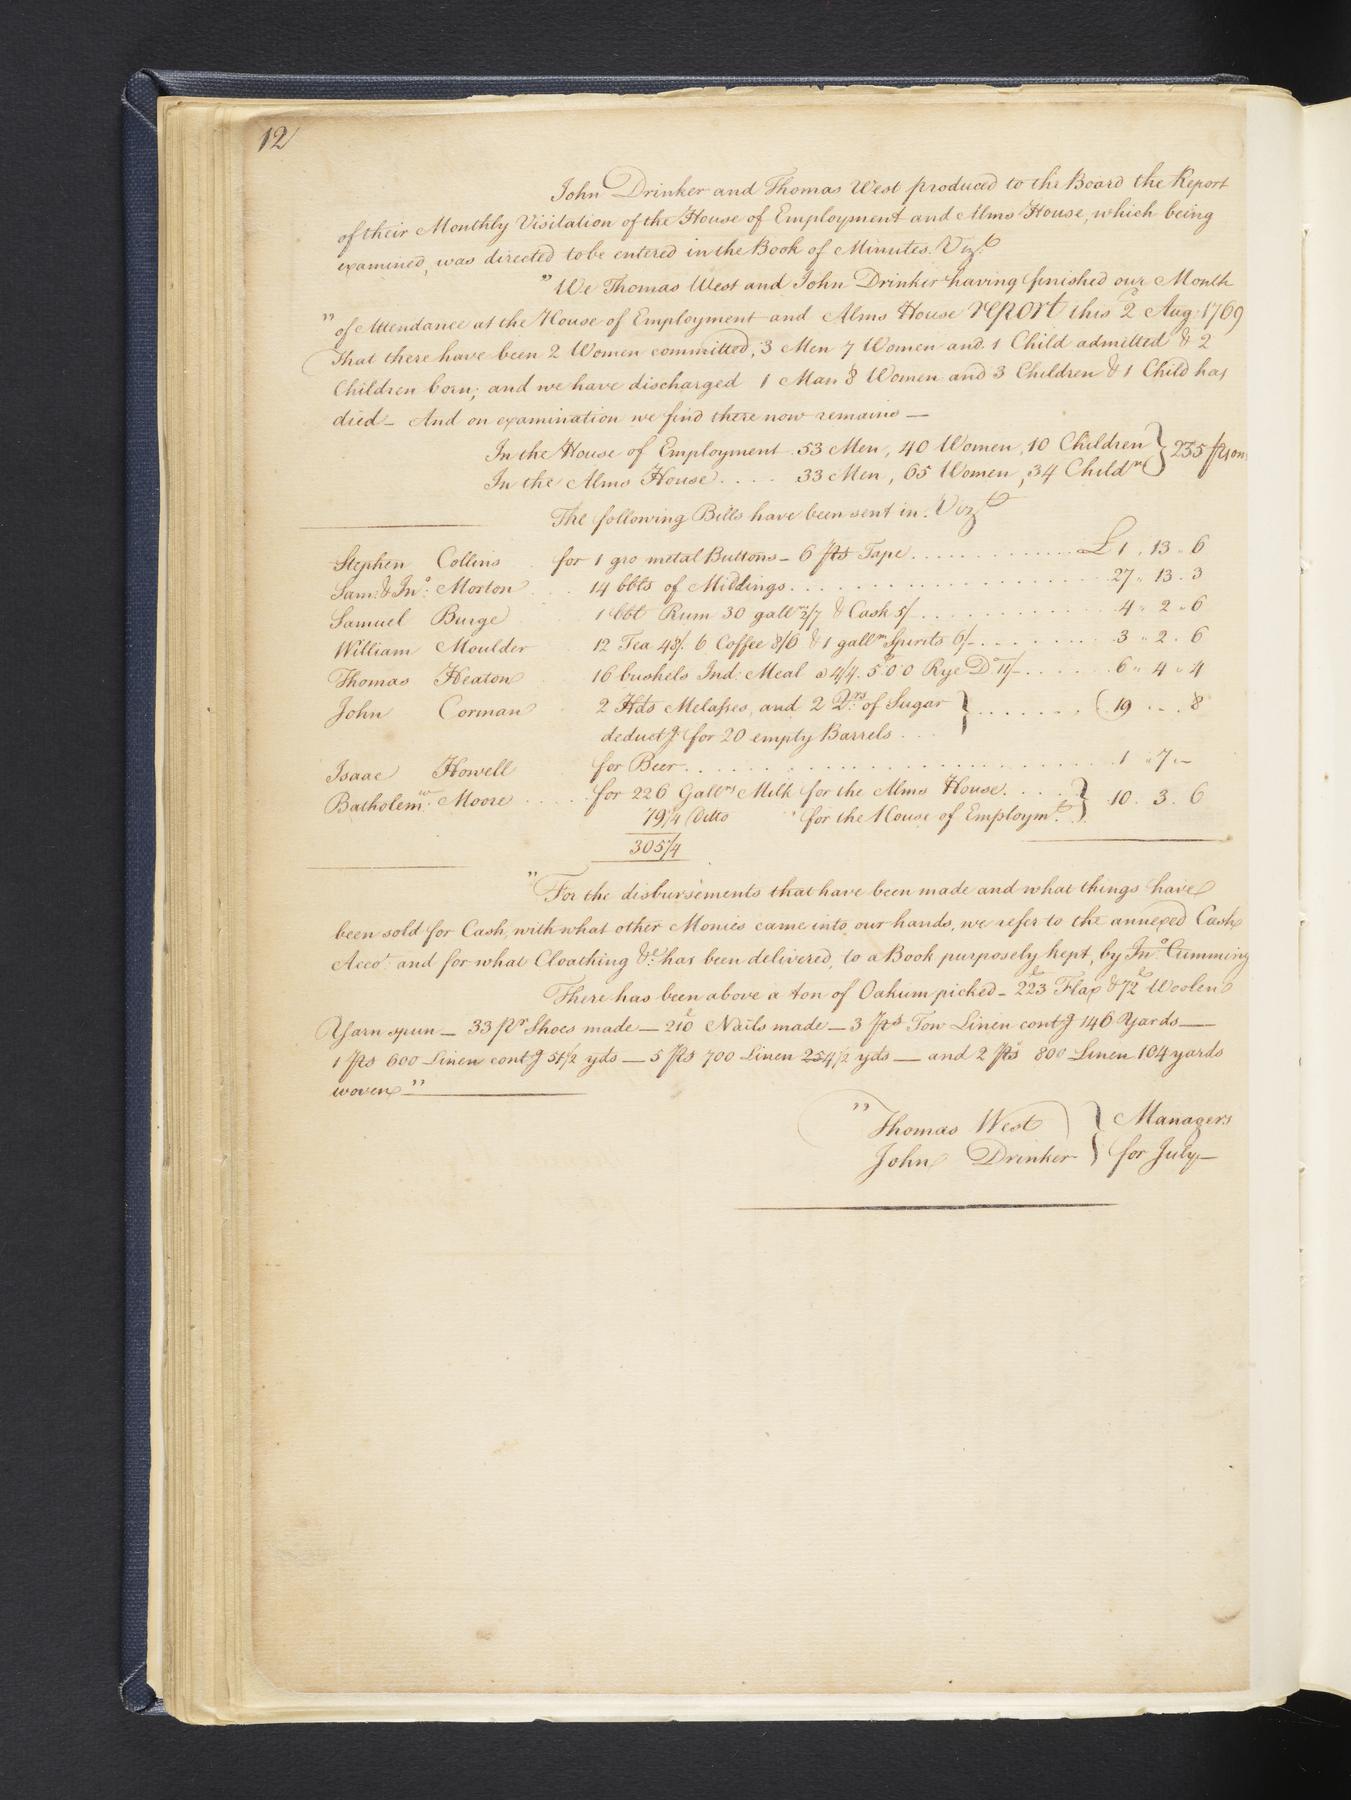 12
John Drinker and Thomas West produced to the Board the Report
of their Monthly Visitation of the House of Employment and Alms House, which being
examined, was directed to be entered in the Book of Minutes. Vizt
" We Thomas West and John Drinker having finished our Month
" of Attendance at the House of Employment and Alms House report this 2 Aug: 1769
That there have been 2 Women committed, 3 Men 7 Women and 1 Child admitted & 2
Children born; and we have discharged 1 Man 8 Women and 3 Children & 1 Child has
died — And on examination we find there now remains —
In the House of Employment 53 Men, 40 Women, 10 Children } 235 pson
In the Alms House .... 33 Men, 65 Women, 34 Childrn
The following Bills have been sent in. Vizt
Stephen Collins for 1 gro metal Buttons — 6 ps Tape ........ £1 " 13 " 6
Sam: & Jno: Morton .. 14 bbls of Middings ........ 27 " 13 " 3
Samuel Burge 1 bbl Rum 30 galls 2/7 & Cask 5/ ........ 4 " 2 " 6
William Moulder 12 Tea 48/. 6 Coffee 8/6 & 1 galln Spirits 6/ ........ 3 " 2 " 6
Thomas Heaton 16 bushels Ind: Meal a 4/4. 500 Rye Do 11/ ........ 6 " 4 " 4
John Corman 2 Hds Melasses, and 2 Qrs of Sugar } ........ 19 .. 8
deductg for 20 empty Barrels ...
Isaac Howell for Beer ........ 1 " 7 " —
Batholemw: Moore .... for 226 Galls Milk for the Alms House .... } 10 . 3 . 6
79 1/4 Ditto " for the House of Employmt.
305 1/4
" For the disbursements that have been made and what things have
been sold for Cash, with what other Monies came into our hands, we refer to the annexed Cash
Acco.t and for what Cloathing &c: has been delivered, to a Book purposely kept, by Jno. Cumming
There has been above a ton of Oakum picked — 223 Flax & 72 Woolen
Yarn spun — 33 pr Shoes made — 210 Nails made — 3 ps Tow Linen contg 146 Yards —
1 ps 600 Linen contg 51 1/2 yds — 5 ps 700 Linen 254 1/2 yds — and 2 ps 800 Linen 104 yards
woven "
" Thomas West } Managers
John Drinker } for July —